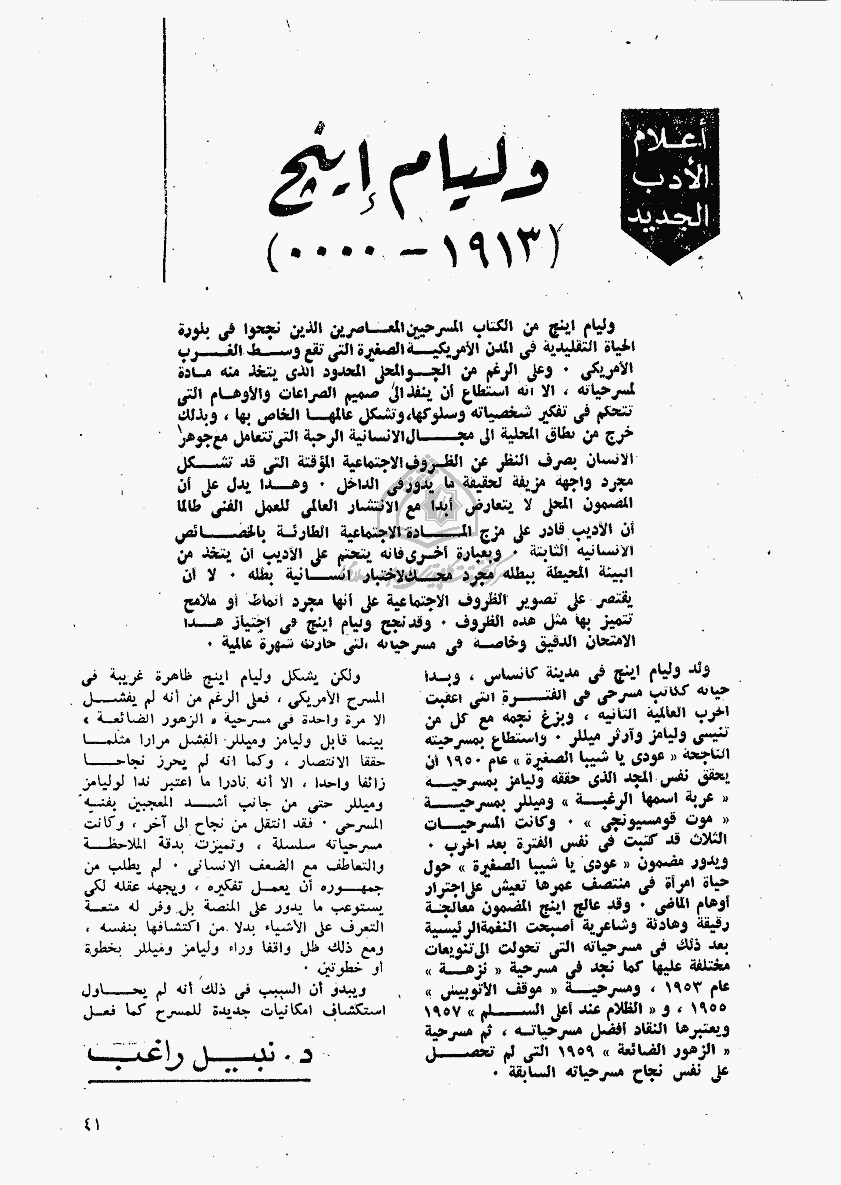 أعلام
الأدب
الجديد
وليام إينج
(١٩١٣ - ٠٠٠٠)
وليام اينج من الكتاب المسرحيين المعاصرين الذين نجحوا فى بلورة
الحياة التقليدية فى المدن الأمريكية الصغيرة التى تقع وسط الغرب
الأمريكى ٠ وعلى الرغم من الجو المحلى المحدود الذى يتخذ منه مادة
لمسرحياته ، الا أنه استطاع أن ينفذ الى صميم الصراعات والأوهام التى
تتحكم فى تفكير شخصياته وسلوكها، وتشكل عالمها الخاص بها ، وبذلك
خرج من نطاق المحلية الى مجال الانسانية الرحبة التى تتعامل مع جوهر
الانسان بصرف النظر عن الظروف الاجتماعية المؤقتة التى قد تشكل
مجرد واجهة مزيفة لحقيقة ما يدور فى الداخل ٠ وهذا يدل على أن
المضمون المحلى لا يتعارض أبدا مع الانتشار العالمى للعمل الفنى طالما
أن الأديب قادر على مزج المادة الاجتماعية الطارئة بالخصائص
الانسانية الثابتة ٠ وبعبارة أخرى فانه يتحتم على الأديب أن يتخذ من
البيئة المحيطة ببطله مجرد محك لاختبار انسانية بطله ٠ لا أن
يقتصر على تصوير الظروف الاجتماعية على أنها مجرد أنماط أو ملامح
تتميز بها مثل هذه الظروف ٠ وقد نجح وليام اينج فى اجتياز هذا
الامتحان الدقيق وخاصة فى مسرحياته التى حازت شهرة عالمية ٠
ولد وليام اينج فى مدينة كانساس ، وبدا
حياته ككاتب مسرحى فى الفترة التى أعقبت
الحرب العالمية الثانية ، وبزغ نجمه مع كل من
تنيسى وليامز وآرثر ميللر ٠ واستطاع بمسرحيته
الناجحة « عودى يا شيبا الصغيرة » عام ١٩٥٠ أن
يحقق نفس المجد الذى حققه وليامز بمسرحية
« عربة اسمها الرغبة » وميللر بمسرحية
« موت قومسيونجى » ٠ وكانت المسرحيات
الثلاث قد كتبت فى نفس الفترة بعد الحرب ٠
ويدور مضمون « عودى يا شيبا الصغيرة » حول
حياة امرأة فى منتصف عمرها تعيش على اجترار
أوهام الماضى ٠ وقد عالج اينج المضمون معالجة
رقيقة وهادئة وشاعرية أصبحت النغمة الرئيسية
بعد ذلك فى مسرحياته التى تحولت الى تنويعات
مختلفة عليها كما نجد فى مسرحية « نزهة »
عام ١٩٥٣ ، ومسرحية « موقف الأتوبيس »
١٩٥٥ ، و « الظلام عند أعلى السلم » ١٩٥٧
ويعتبرها النقاد أفضل مسرحياته ، ثم مسرحية
« الزهور الضائعة » ١٩٥٩ التى لم تحصل
على نفس نجاح مسرحياته السابقة ٠
ولكن يشكل وليام اينج ظاهرة غريبة فى
المسرح الأمريكى ، فعلى الرغم من أنه لم يفشل
الا مرة واحدة فى مسرحية « الزهور الضائعة »
بينما قابل وليامز وميللر الفشل مرارا مثلما
حققا الانتصار ، وكما أنه لم يحرز نجاحا
زائفا واحدا ، الا أنه نادرا ما اعتبر ندا لوليامز
وميللر حتى من جانب أشد المعجبين بفنه
المسرحى ٠ فقد انتقل من نجاح الى آخر ، وكانت
مسرحياته سلسلة ، وتميزت بدقة الملاحظة
والتعاطف مع الضعف الانسانى ٠ لم يطلب من
جمهوره أن يعمل تفكيره ، ويجهد عقله لكى
يستوعب ما يدور على المنصة بل وفر له متعة
التعرف على الأشياء بدلا من اكتشافها بنفسه ،
ومع ذلك ظل واقفا وراء وليامز وميللر بخطوة
أو خطوتين ٠
ويبدو أن السبب فى ذلك أنه لم يحاول
استكشاف امكانيات جديدة للمسرح كما فعل
د. نبيل راغب
٤١